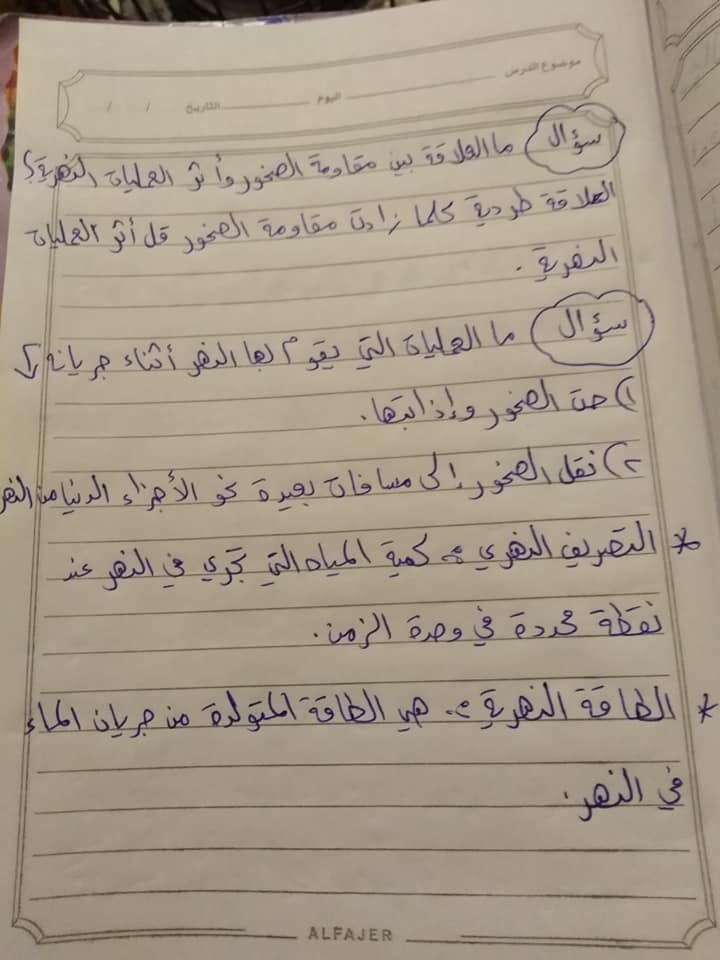 موضوع الدرس
اليوم
التاريخ / /
سؤال ما العلاقة بين مقاومة الصخور وأثر العمليات النهرية؟
العلاقة طردية كلما زادت مقاومة الصخور قل أثر العمليات
النهرية .
سؤال ما العمليات التي يقوم بها النهر أثناء جريانه
١) حت الصخور وإذابتها.
٢) نقل الصخور إلى مسافات بعيدة نحو الأجزاء الدنيا من النهر
* التصريف النهري :- كمية المياه التي تجري في النهر عند
نقطة محددة في وحدة الزمن.
* الطاقة النهرية :- هي الطاقة المتولدة من جريان الماء
في النهر.
ALFAJER